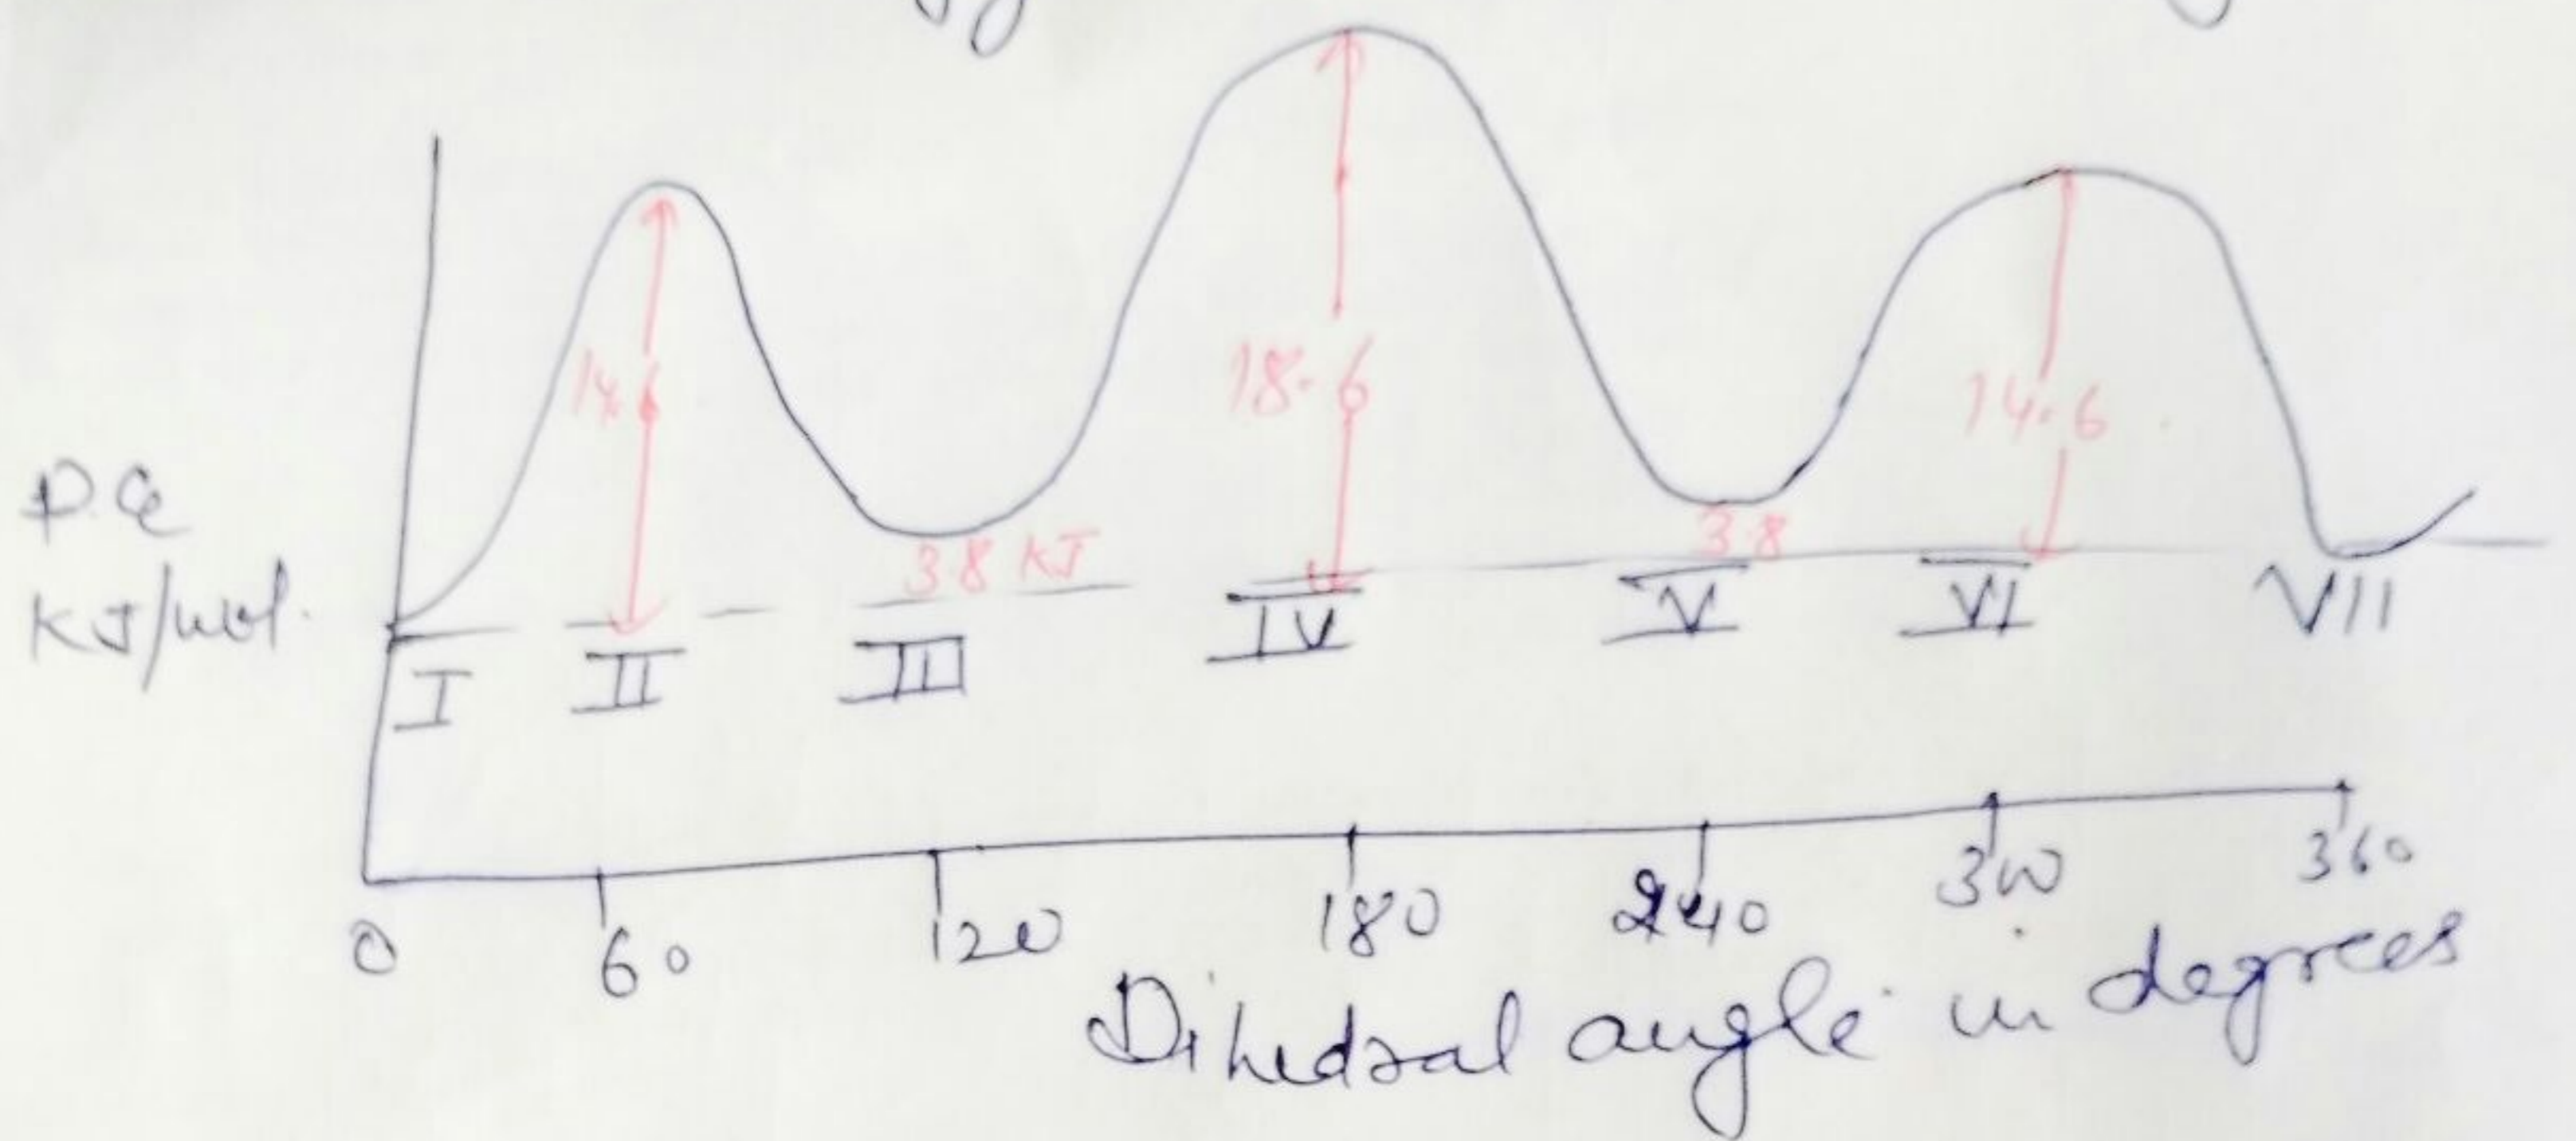 14.6
18.6
14.6
P.E
KJ/mol.
3.8 KJ
3.8
I II III IV V VI VII
0 60 120 180 240 300 360
Dihedral angle in degrees